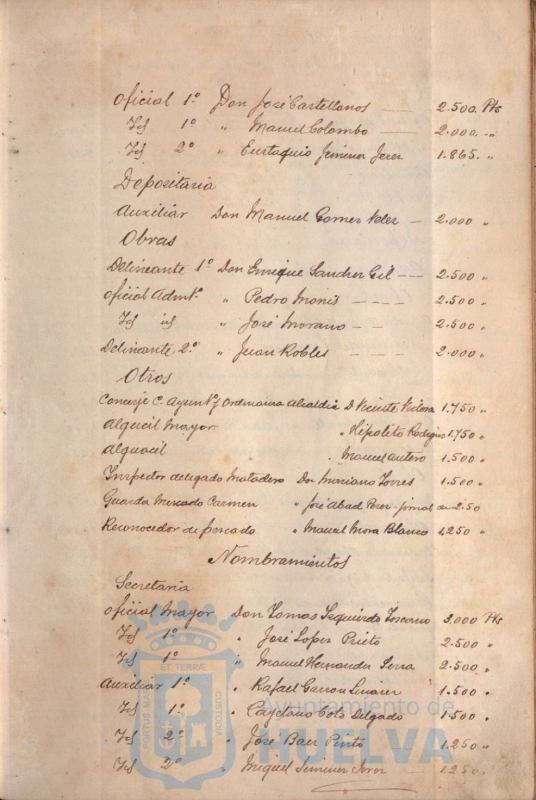 Oficial 1º Don José Castellanos — 2.500. Pts
Id 1º " Manuel Colombo — 2.000. "
Id 2º " Eustaquio Jimenez Jerez 1.865. "
Depositaria
Auxiliar Don Manuel Gomez Velez — 2.000 "
Obras
Delineante 1º Don Enrique Sanchez Gil — 2.500 "
Oficial Admtº " Pedro Monis — 2.500 "
Id id " José Morano — 2.500 "
Delineante 2º " Juan Robles — 2.000 "
Otros
Conserje C. Ayuntº y Ordenanza Alcaldía D Vicente 1.750 "
Alguacil Mayor " Hipolito Rodrigues 1.750 "
Alguacil " Manuel Antero 1.500 "
Inspector delegado Matadero Don Mariano Torres 1.500 "
Guarda Mercado Carmen " José Abad Perez - jornal de 2.50
Reconocedor de pescado " Manuel Mora Blanco 1,250 "
Nombramientos
Secretaria
Oficial Mayor Don Tomas Izquierdo Toscano 3,000 Pts
Id 1º " José Lopez Prieto 2.500 "
Id 1º " Manuel Hernandez Serra 2.500 "
Auxiliar 1º " Rafael Garzon 1.500 "
Id 1º " Cayetano Delgado 1.500 "
Id 2º " José Baez Pinto 1.250 "
Id 2º " Miguel Jimenez 1250 "
PORTUS MARIS ET TERRÆ CUSTODIA
Ayuntamiento de
HUELVA